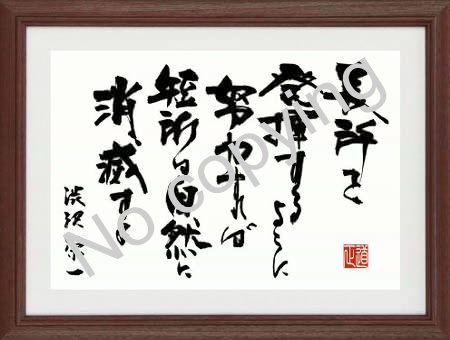 長所を
発揮するように
努力すれば
短所は自然に
消滅する
渋沢栄一
No copying